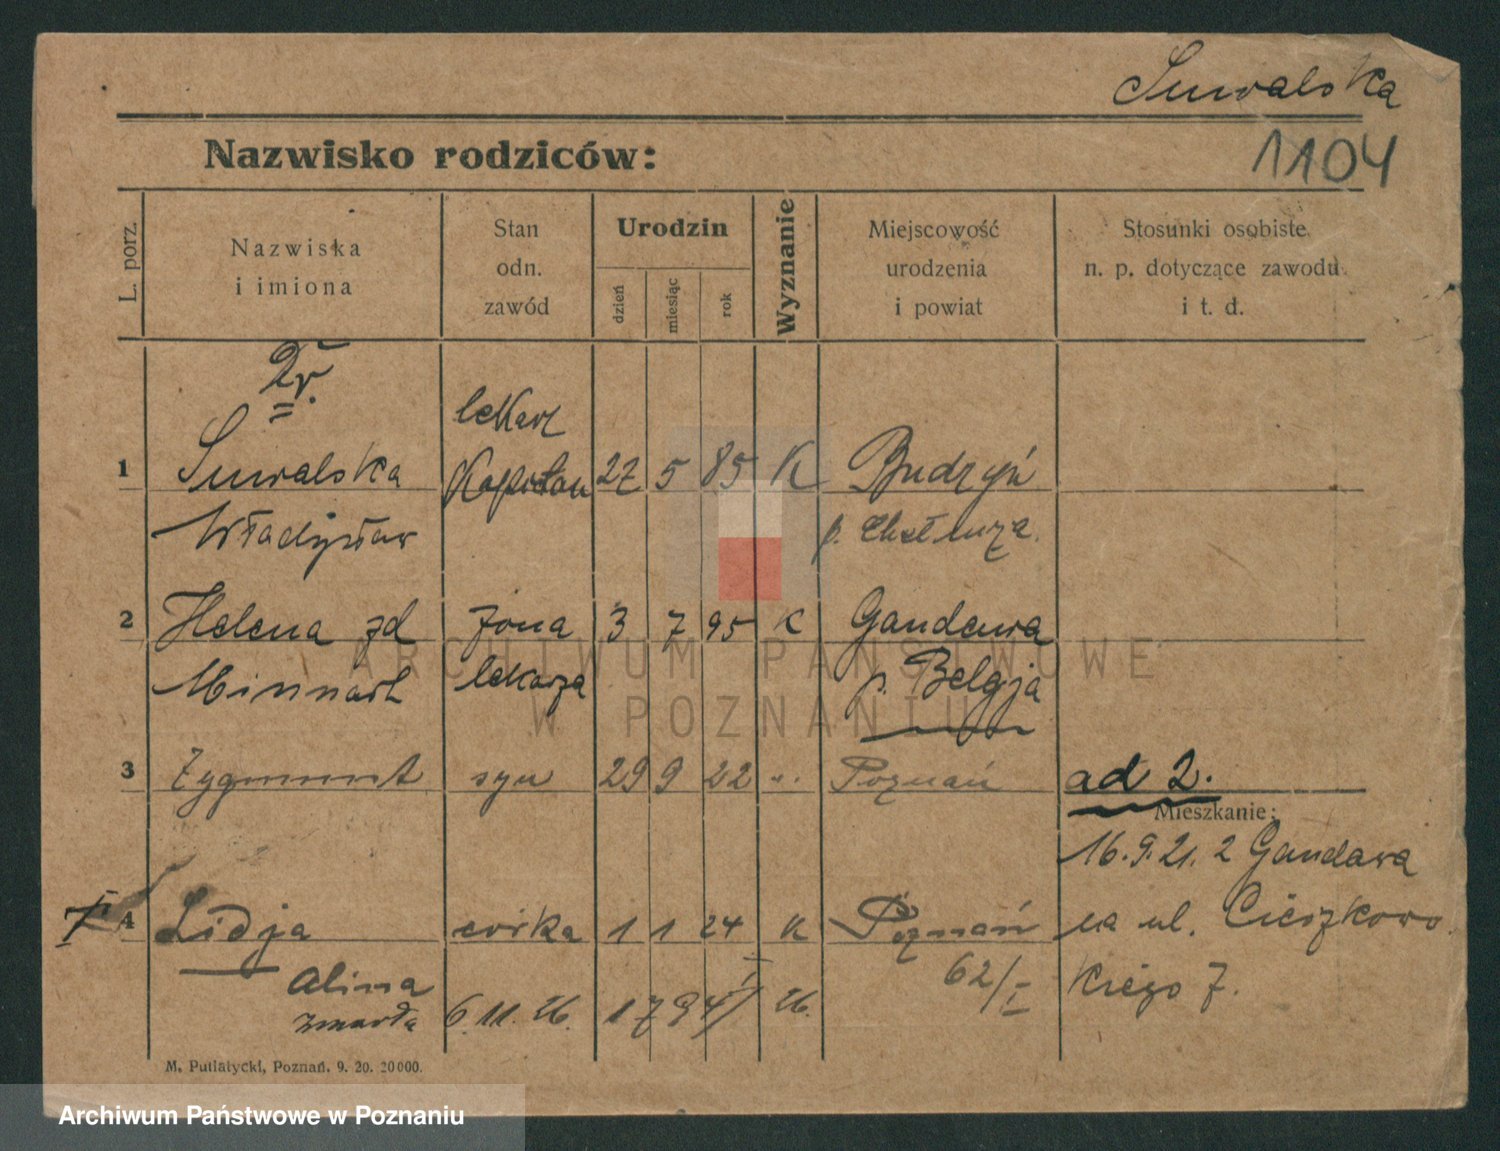 Suwalska
1104
Nazwisko rodziców:
L. porz.
Nazwiska
i imiona
Stan
odn.
zawód
Urodzin
dzień
miesiąc
rok
Wyznanie
Miejscowość
urodzenia
i powiat
Stosunki osobiste
n. p. dotyczące zawodu
i t. d.
Dr.
lekarz
1 Suwalska Kapitan 27 5 85 K Budzyń
Władysław p.
2 Helena zd żona 3 7 95 K Gandawa
lekarza p. Belgja
3 Zygmunt syn 29 9 22 „ Poznań ad 2.
Mieszkanie:
16.9.21. z Gandawa
4 Lidja córka 1 1 24 K Poznań na ul. Cieszkows
Alina 62/I kiego 7.
zmarła 6.11.26. 1794/ 26.
M. Putiatycki, Poznań. 9. 20. 20000.
ARCHIWUM PAŃSTWOWE
W POZNANIU
Archiwum Państwowe w Poznaniu